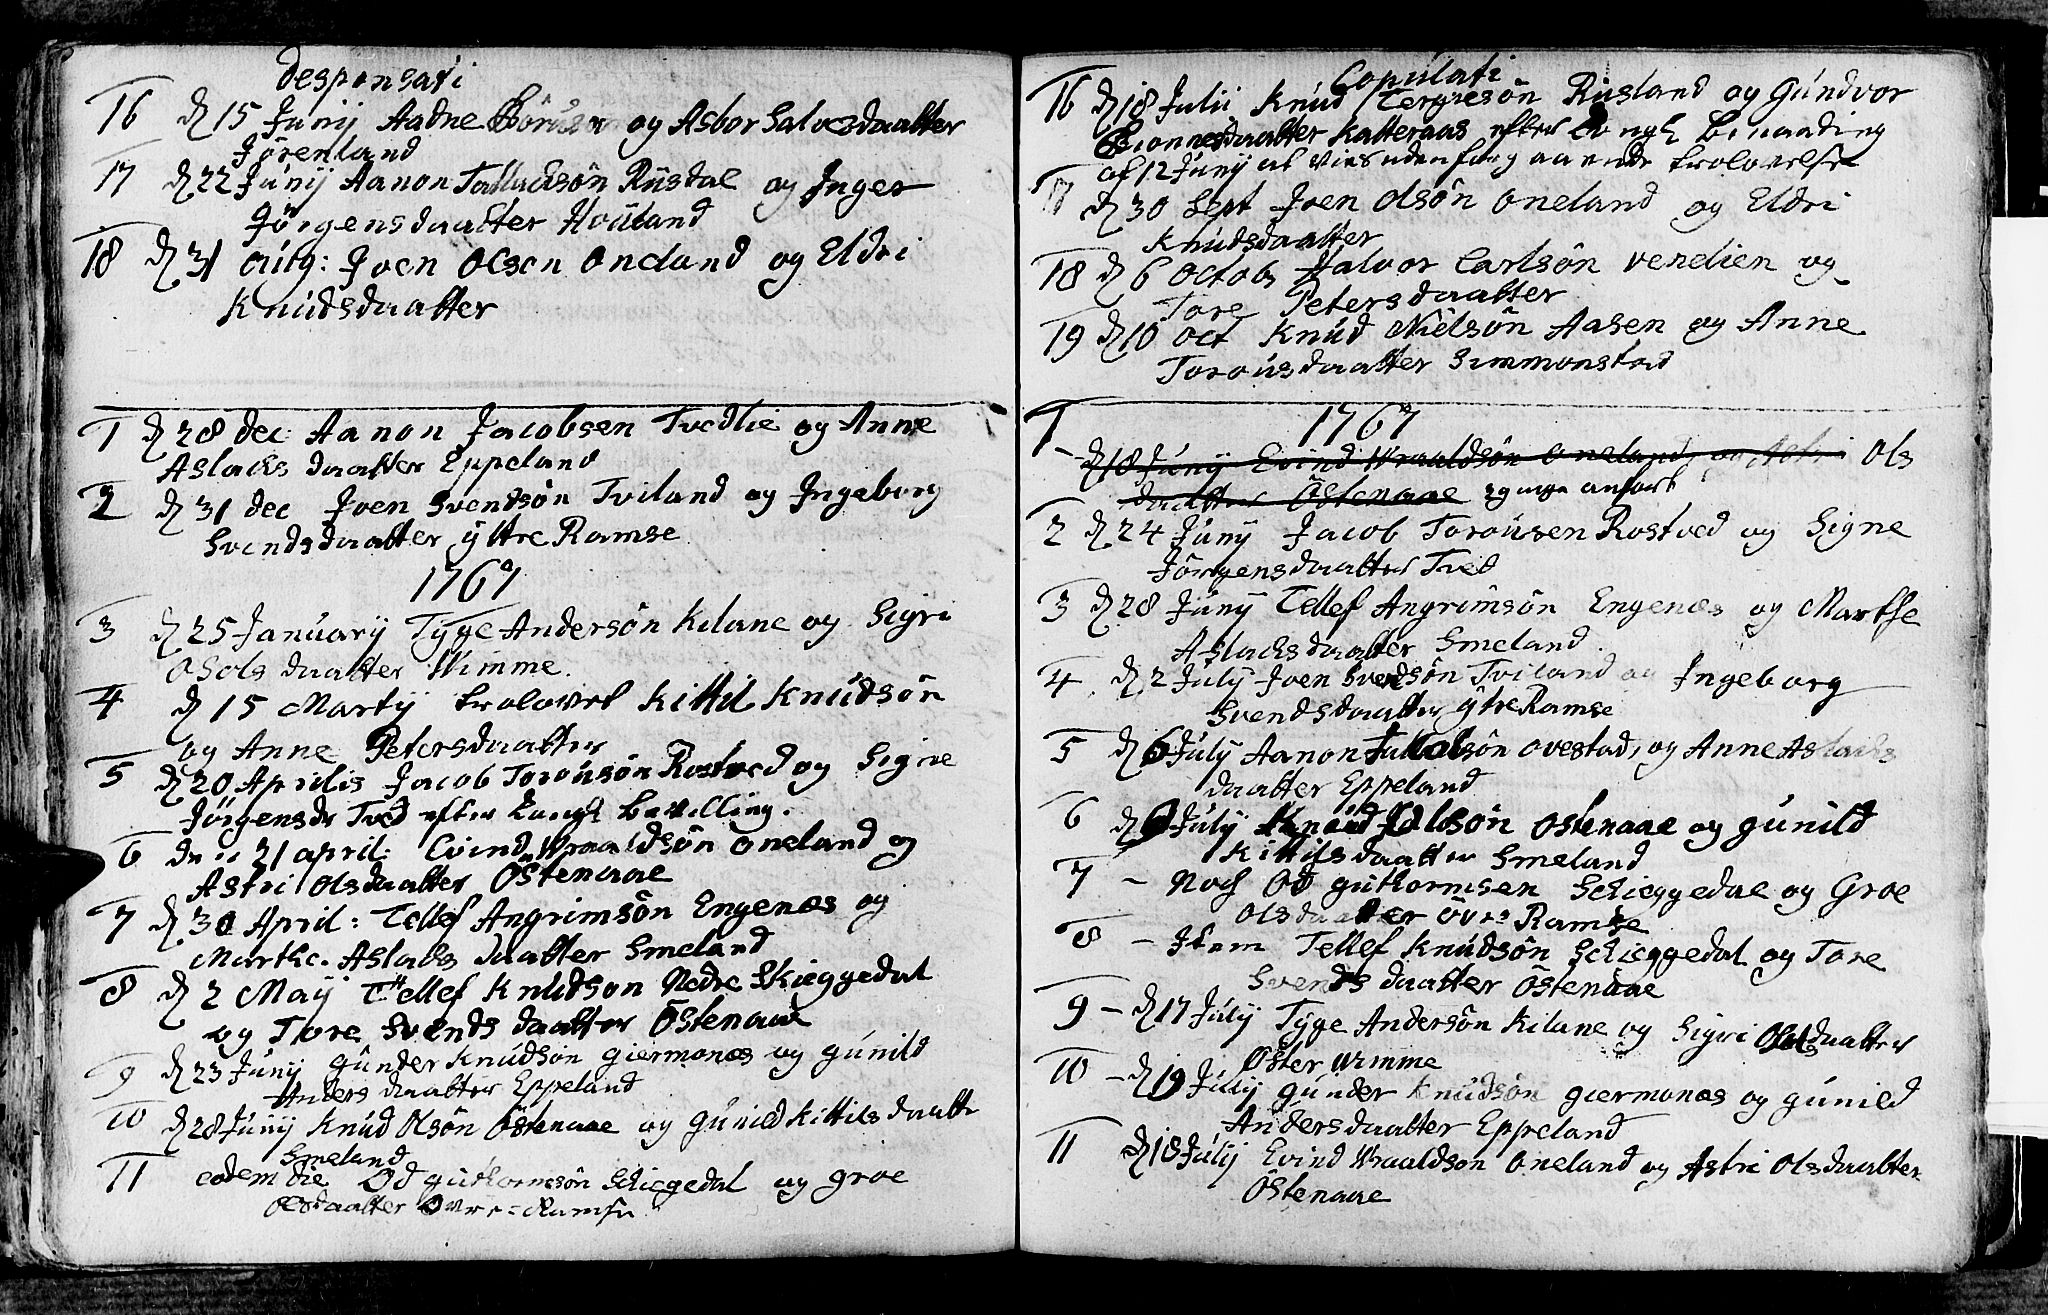 Desponsati
16 d 15 Junij Aadne og Asbor Salvesdaatter
Jörenland
17 d 22 Junij Aanon Tallachsön Rüsdal og Inger
Jörgensdaatter Houland
18 d 31 aug: Joen Olsen Oneland og Eldri
Knudsdaatter
1 d 28 dec Aanon Jacobsen Tvedlie og Anne
Aslachsdaatter Eppeland
2 d 31 dec Joen Svendsön Tviland og Ingeborg
Svendsdaatter yttre Ramse
1767
3 d 25 Januarij Tÿge Andersön Kilane og Sigri
Osolsdaatter Wimme
4 d 15 Martij trolovet Kittil Knudsön
og Anne Petersdaatter
5 d 20 Aprilis Jacob Torousön Rostved og Signe
Jörgensdr Tved efter Kongl Bevilling.
6 den 21 april: Evind Wraaldsön Oneland og
Astri Olsdaatter Östenaae
7 d 30 April: Tellef Angrimsön Engenæs og
Marthe Aslachsdaatter Smeland
8 d 2 Maij Tellef Knudson Nedre Skieggedal
og Tore Svendsdaatter Östenaae
9 d 23 Junij Gunder Knudsön Giermonæs og Gunild
Andersdaatter Eppeland
10 d 28 Junij Knud Olsön Östenaae og Gunild Kittilsdaatt
Smeland
11 eodem die Od Guthormsön Schieggedal og Groe
Olsdaatter Övre-Ramse
Copulati
16 d 18 Julii Knud Tergiesön Rüsland og Gundvor
Bionnesdaatter Katteraas efter Kongl Bevilling
af 12 Junij at vies uden foregaaende trolovelse
17 d 30 Sept Joen Olsön Oneland og Eldri
Knudsdaatter
18 d 6 Octob Halvor Carlsön Venelien og
Tore Petersdaatter
19 d 10 oct Knud Nielsön Aasen og Anne
Torousdaatter Simmonstad
1767
1 - d 18 Junij Evind Wraaldsön Oneland og Astri Ols
daatter Östenaae anfört
2 d 24 Junij Jacob Torousen Rostved og Signe
Jörgensdaatter Tved
3 d 28 Junij Tellef Angrimsön Engenæs og Marthe
Aslachsdaatter Smeland
4 d 2 Julij Joen Svendsön Tviland og Ingeborg
Svendsdaatter ytre Ramse
5 d 6 Julij Aanon Ovestad, og Anne Aslachs
daatter Eppeland
6 d 9 Julij Knud Olsön Östenaae og Gunild
Kittilsdaatter Smeland
7 - Noch Od Guthormsen Schieggedal og Groe
Olsdaatter Övre Ramse
8 - Item Tellef Knudsön Schieggedal og Tore
Svendsdaatter Östenaae
9 - d 17 Julij Tÿge Andersön Kilane og Sigri Osolsdaatter
Öster Wimme
10 - d 19 Julij Gunder Knudsön Giermonæs og Gunild
Andersdaatter Eppeland
11 d 18 Julij Evind Wraaldsön Oneland og Astri Olsdaatter
Östenaae